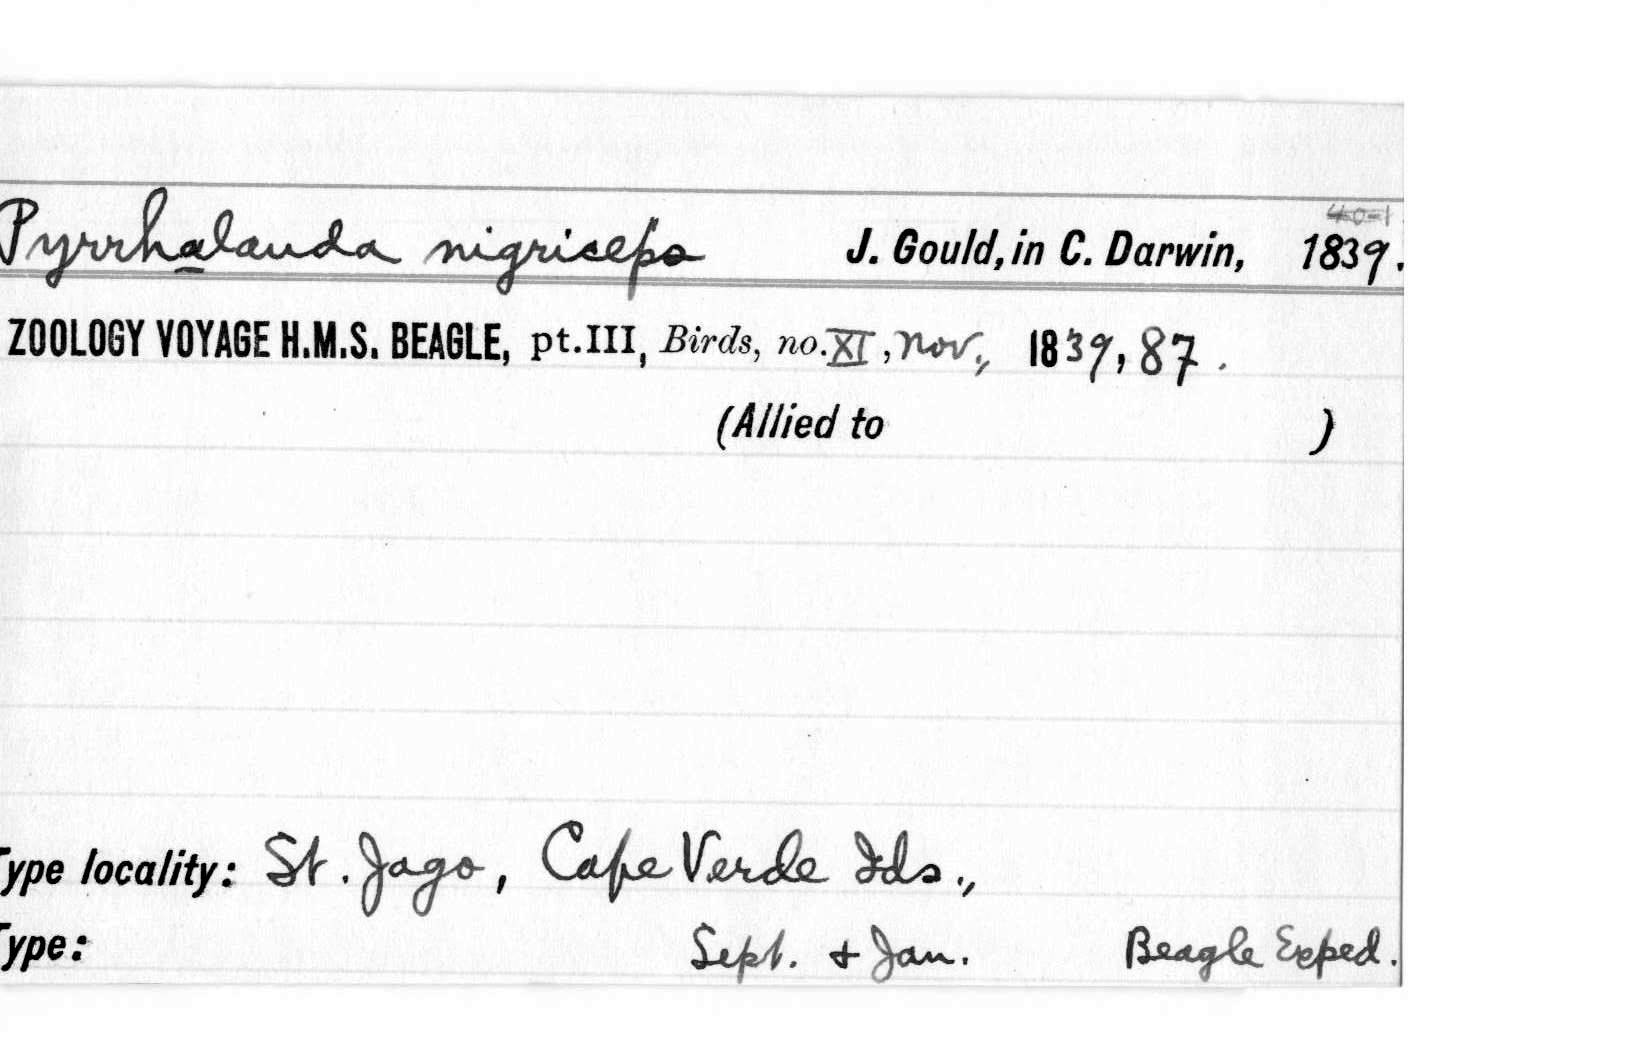 40-1
Pyrrhalauda nigriceps J. Gould, in C. Darwin, 1839.
ZOOLOGY VOYAGE H.M.S. BEAGLE, pt.III, Birds, no. XI, Nov., 1839, 87.
(Allied to )
Type locality: St. Jago, Cape Verde Ids.,
Type: Sept. + Jan. Beagle Exped.